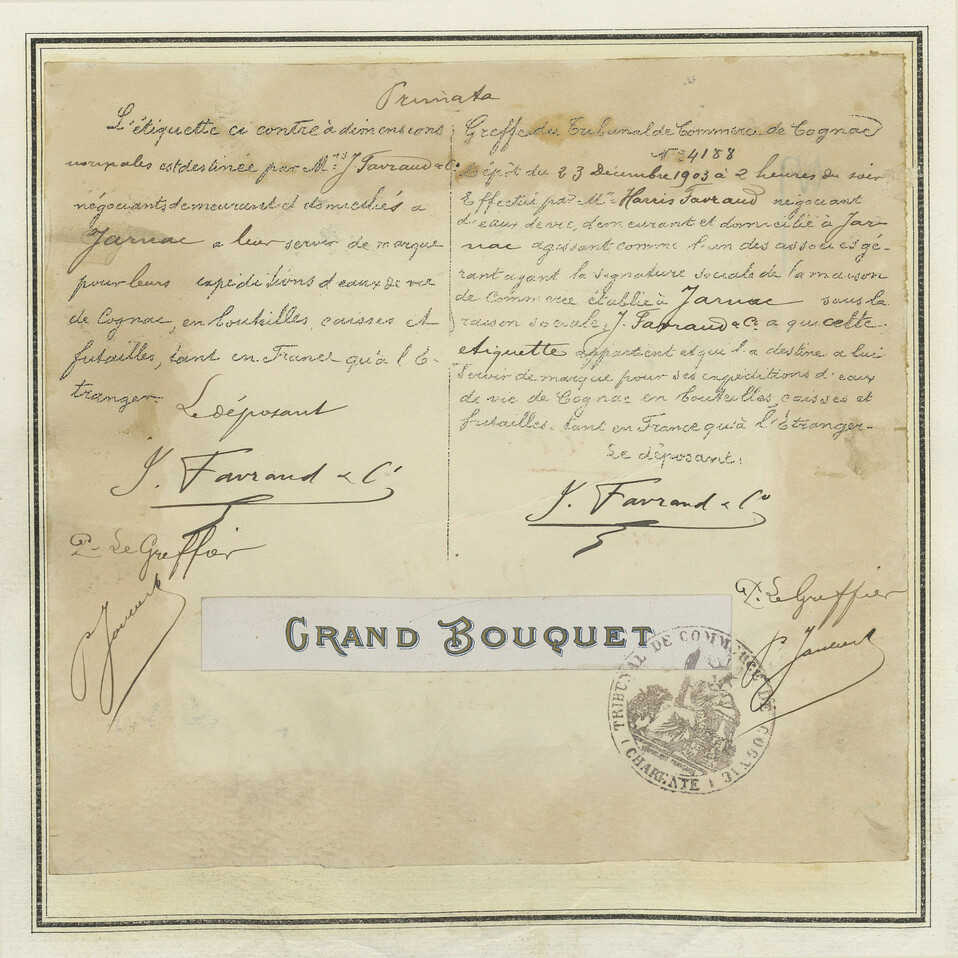 Primata
L'étiquette ci contre à dimensions
normales est destinée par M.rs J. Favraud & C.o
négociants demeurant et domiciliés à
Jarnac à leur servir de marque
pour leurs expéditions d'eaux de vie
de Cognac, en bouteilles, caisses et
futailles, tant en France qu'à l'É-
tranger.
Le déposant
J. Favraud & C.o
P. Le Greffier
Greffe du Tribunal de Commerce de Cognac
N.o 4188
Dépôt du 23 Décembre 1903 à 2 heures du soir
Effectué par M.r Harris Favraud négociant
d'eaux de vie, demeurant et domicilié à Jar-
nac agissant comme l'un des associés gé-
rant ayant la signature sociale de la maison
de Commerce établie à Jarnac sous la
raison sociale, J. Favraud & C.o a qui cette
étiquette appartient et qui l'a destiné a lui
servir de marque pour ses expéditions d'eaux
de vie de Cognac en bouteilles, caisses et
futailles, tant en France qu'à l'Étranger.
Le déposant.
J. Favraud & C.o
P. Le Greffier
GRAND BOUQUET
TRIBUNAL DE COMMERCE DE COGNAC
(CHARENTE)